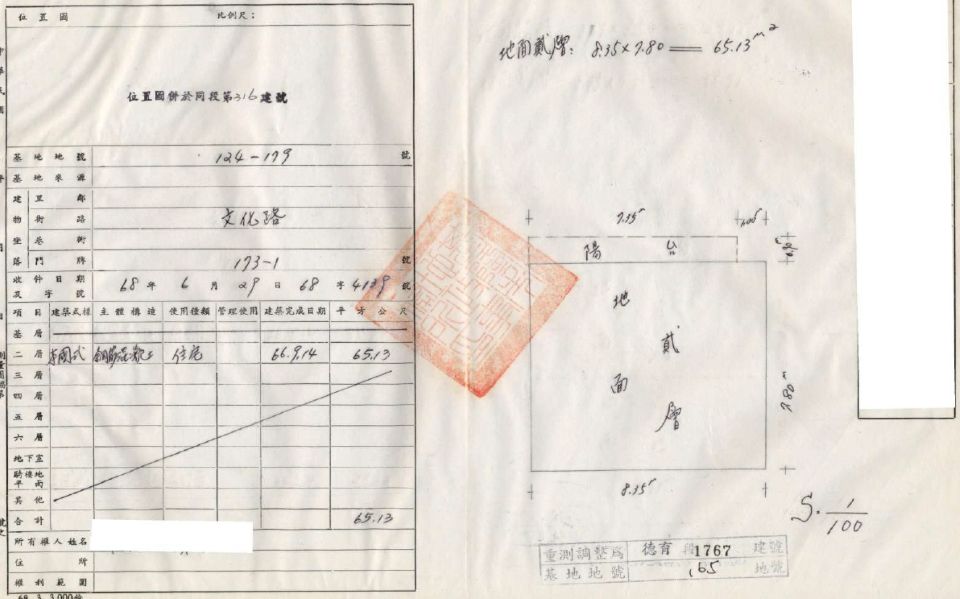 位置圖 比例尺：
位置圖併於同段第316建號
基地地號 124-179 號
基地來源
建 里 鄰
物 街 路 文化路
坐 巷 衖
落 門 牌 173-1 號
收件日期及字號 68年6月29日68字4139號
項目 建築式樣 主體構造 使用種類 管理使用 建築完成日期 平方公尺
基層
二層 本國式 住宅 66.9.14 65.13
三層
四層
五層
六層
地下室
騎樓地平面
其他
合計 65.13
所有權人姓名
住所
權利範圍
68.3.3,000份
地面貳層：8.35×7.80＝65.13m²
7.35m
陽台
地面
貳層
7.80m
8.35m
S. 1/100
重測調整為 德育段1767建號
基地地號 165 地號